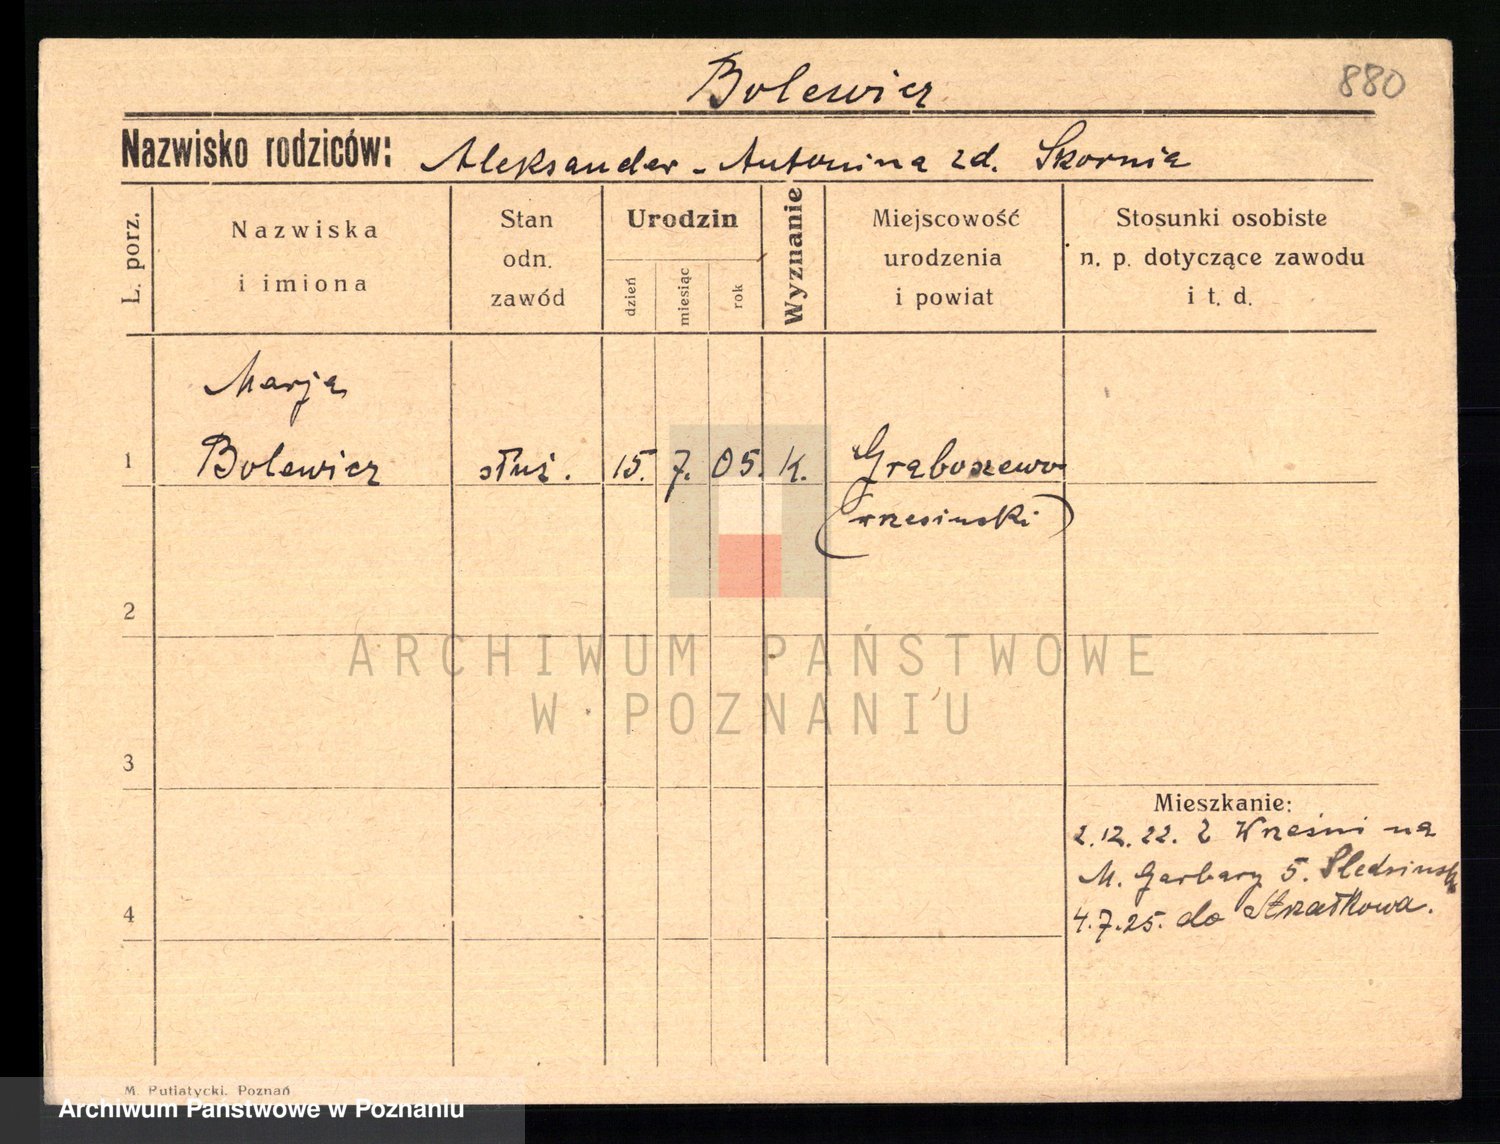 880
Bolewicz
Nazwisko rodziców: Aleksander - Antonina zd. Skornia
L. porz.
Nazwiska
i imiona
Stan
odn.
zawód
Urodzin
dzień
miesiąc
rok
Wyznanie
Miejscowość
urodzenia
i powiat
Stosunki osobiste
n. p. dotyczące zawodu
i t. d.
Marja
1 Bolewicz służ. 15. 7. 05. K. Graboszewo
(wrzesiński)
2
ARCHIWUM PAŃSTWOWE
W POZNANIU
3
Mieszkanie:
2.12.22. z Wrześni na
M. Garbary 5.
4
4.7.25. do Strzałkowa.
M. Putiatycki, Poznań
Archiwum Państwowe w Poznaniu